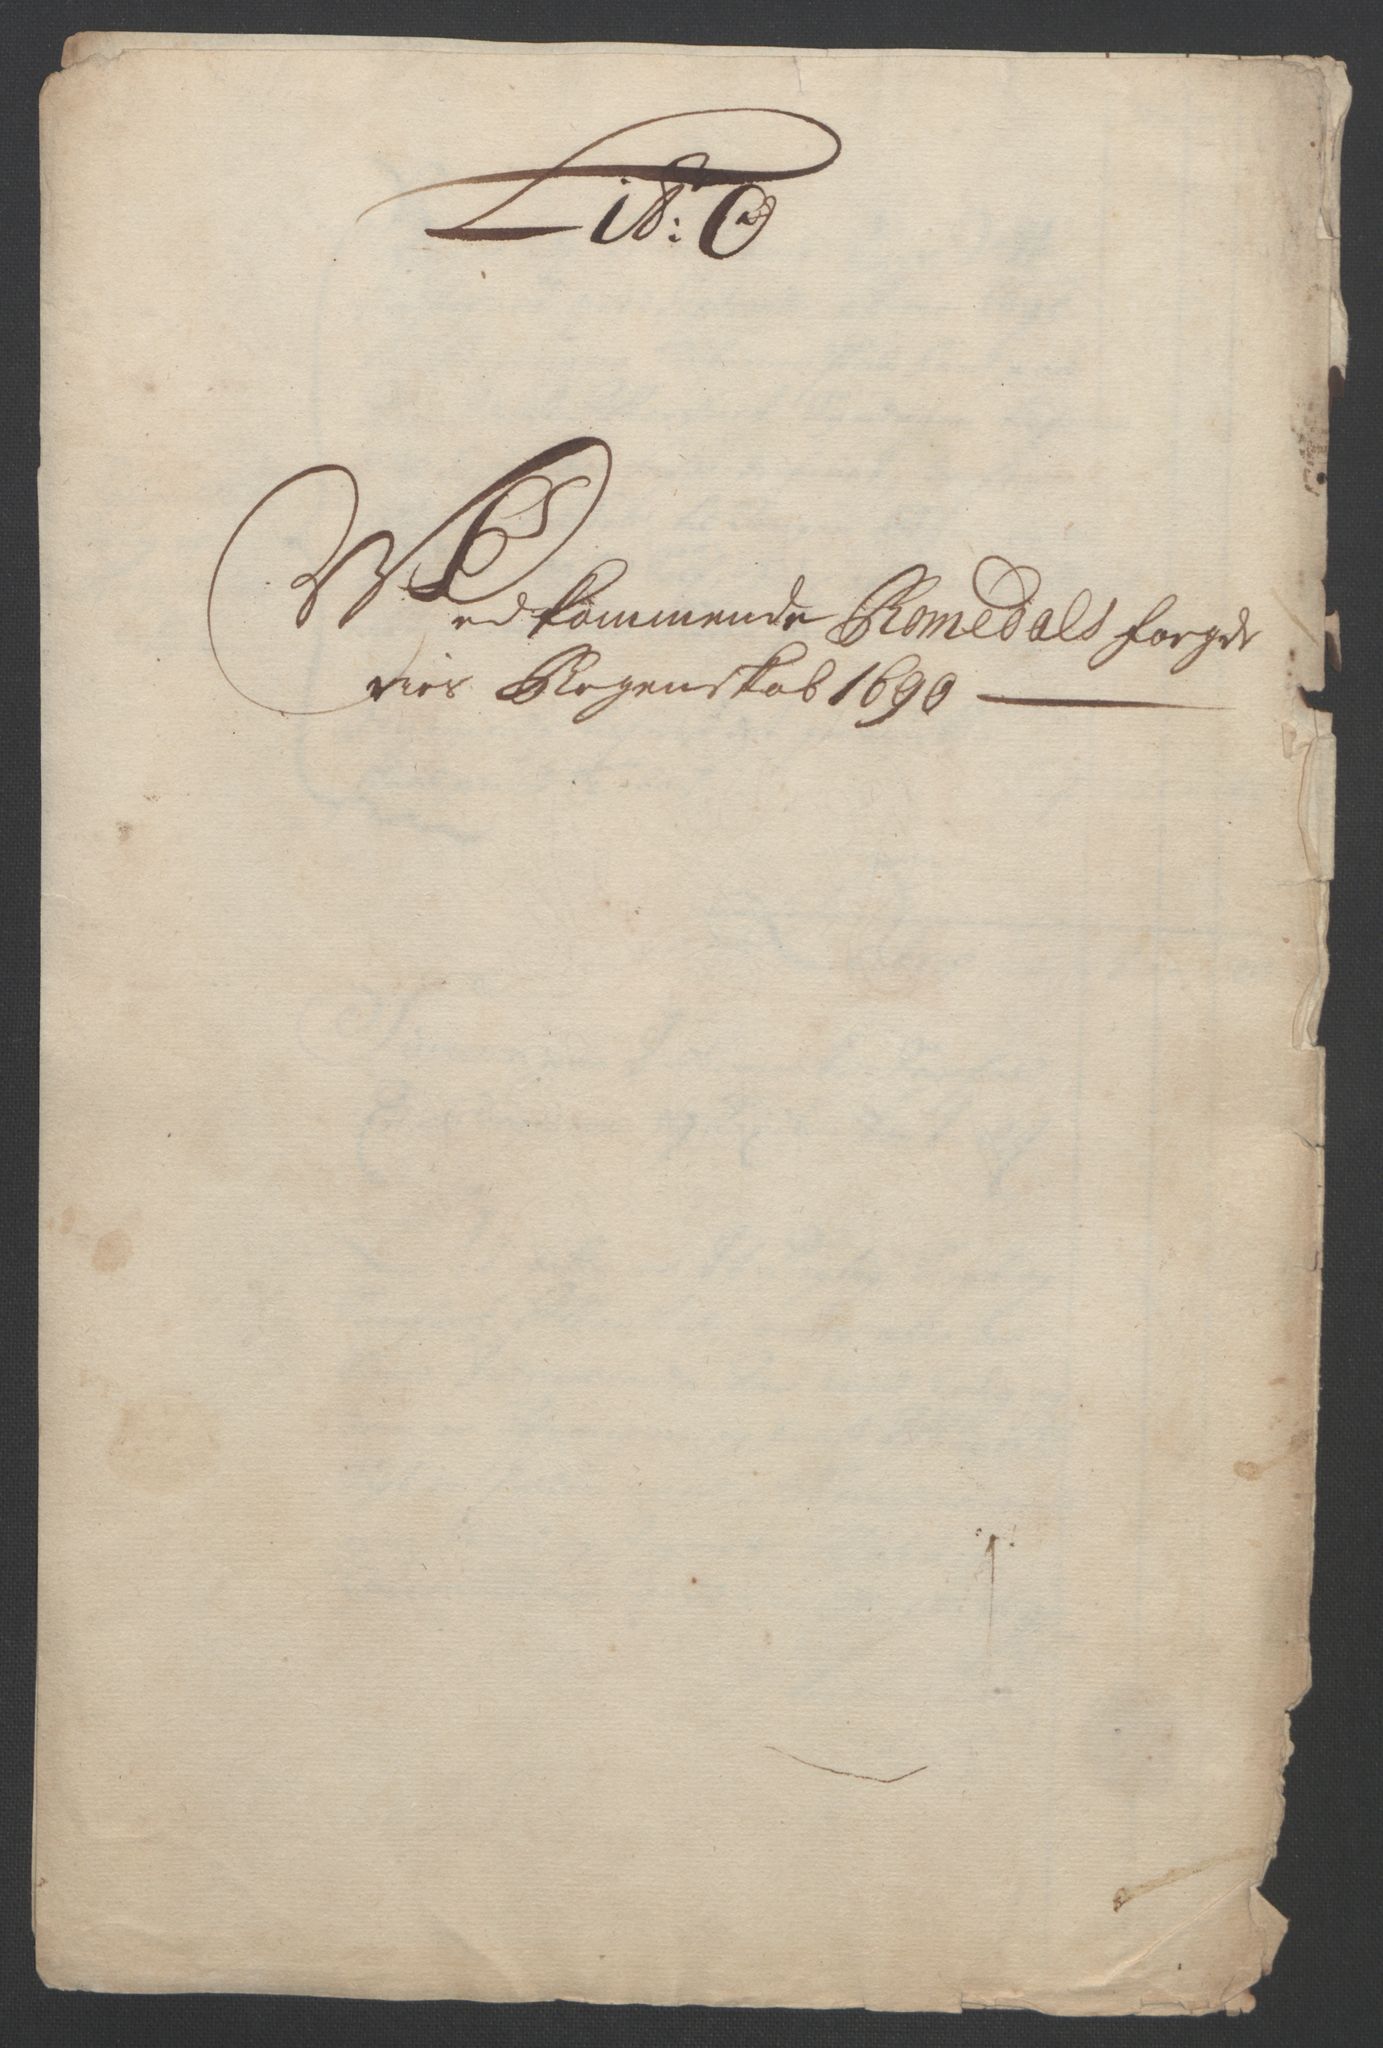 Lit: C
Vedkommende Romsdals fogde
ries Regenskab 1690